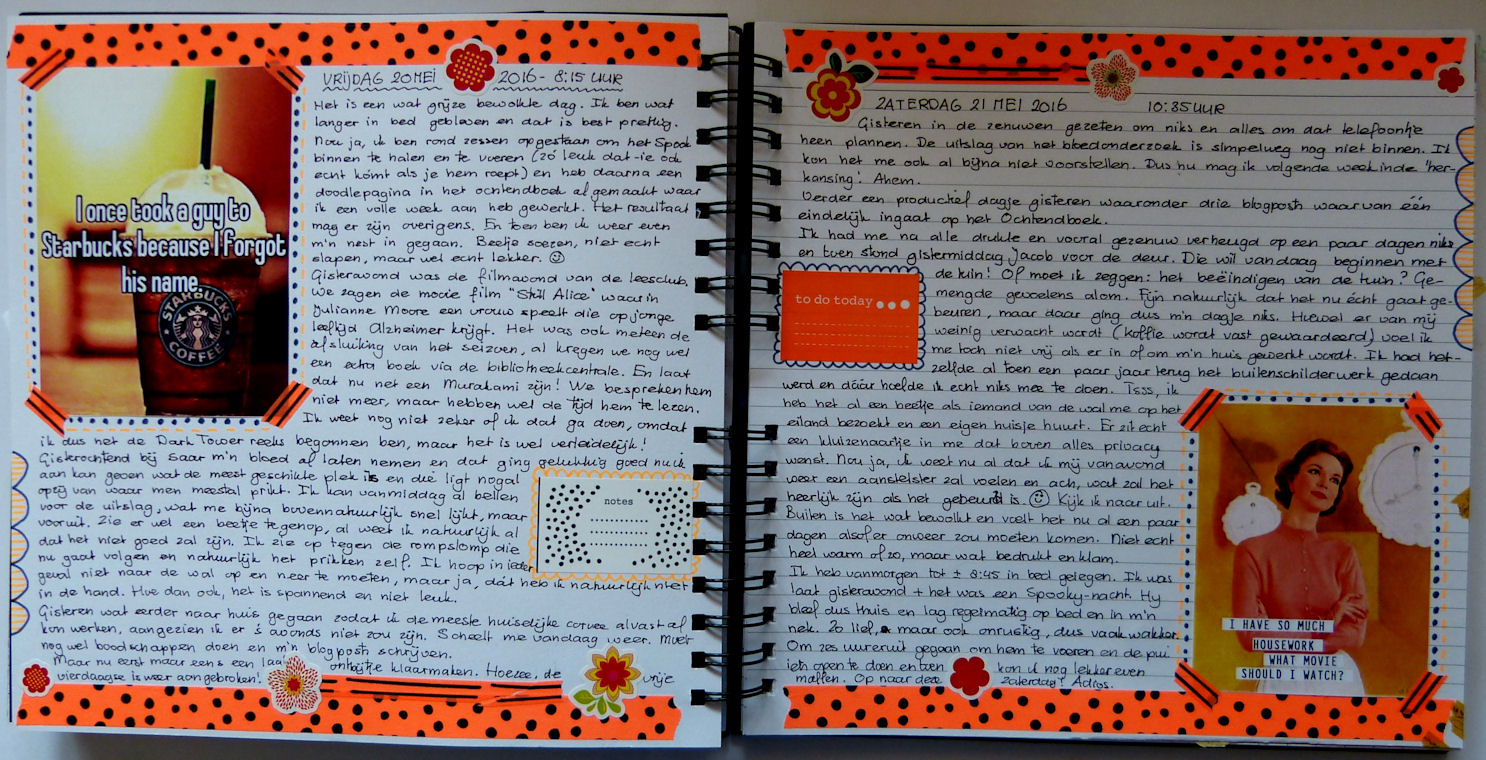 VRIJDAG 20 MEI 2016 - 8:15 UUR
Het is een wat grijze bewolkte dag. Ik ben wat
langer in bed gebleven en dat is best prettig.
Nou ja, ik ben rond zessen opgestaan om het Spook
binnen te halen en te voeren (zó leuk dat-ie ook
echt kómt als je hem roept) en heb daarna een
doodlepagina in het ochtendboek afgemaakt waar
ik een volle week aan heb gewerkt. Het resultaat
mag er zijn overigens. En toen ben ik weer even
m'n nest in gegaan. Beetje soezen, niet echt
slapen, maar wel echt lekker. ☺
Gisteravond was de filmavond van de leesclub.
We zagen de mooie film "Still Alice" waarin
Julianne Moore een vrouw speelt die op jonge
leeftijd Alzheimer krijgt. Het was ook meteen de
afsluiting van het seizoen, al kregen we nog wel
een extra boek via de bibliotheekcentrale. En laat
dat nu net een Murakami zijn! We bespreken hem
niet meer, maar hebben wel de tijd hem te lezen.
Ik weet nog niet zeker of ik dat ga doen, omdat
ik dus net de Dark Tower reeks begonnen ben, maar het is wel verleidelijk!
Gisterochtend bij Saar m'n bloed af laten nemen en dat ging gelukkig goed nu ik
aan kan geven wat de meest geschikte plek is en die ligt nogal
opzij van waar men meestal prikt. Ik kan vanmiddag al bellen
voor de uitslag, wat me bijna bovennatuurlijk snel lijkt, maar
vooruit. Zie er wel een beetje tegenop, al weet ik natuurlijk al
dat het niet goed zal zijn. Ik zie op tegen de rompslomp die
nu gaat volgen en natuurlijk het prikken zelf. Ik hoop in ieder
geval niet naar de wal op en neer te moeten, maar ja, dát heb ik natuurlijk niet
in de hand. Hoe dan ook, het is spannend en niet leuk.
Gisteren wat eerder naar huis gegaan zodat ik de meeste huiselijke corvee alvast af
kon werken, aangezien ik er 's avonds niet zou zijn. Scheelt me vandaag weer. Moet
nog wel boodschappen doen en m'n blogpost schrijven.
Maar nu eerst maar eens een laat ontbijtje klaarmaken. Hoezee, de vrije
vierdaagse is weer aangebroken!
I once took a guy to
Starbucks because I forgot
his name.
STARBUCKS
COFFEE
notes
ZATERDAG 21 MEI 2016 10:35 UUR
Gisteren in de zenuwen gezeten om niks en alles om dat telefoontje
heen plannen. De uitslag van het bloedonderzoek is simpelweg nog niet binnen. Ik
kon het me ook al bijna niet voorstellen. Dus nu mag ik volgende week in de 'her-
kansing'. Ahem.
Verder een productief dagje gisteren waaronder drie blogposts waarvan één
eindelijk ingaat op het Ochtendboek.
Ik had me na alle drukte en vooral gezenuw verheugd op een paar dagen niks
en toen stond gistermiddag Jacob voor de deur. Die wil vandaag beginnen met
de tuin! Of moet ik zeggen: het beëindigen van de tuin? Ge-
mengde gevoelens alom. Fijn natuurlijk dat het nu écht gaat ge-
beuren, maar daar ging dus m'n dagje niks. Hoewel er van mij
weinig verwacht wordt (koffie wordt vast gewaardeerd) voel ik
me toch niet vrij als er in of om m'n huis gewerkt wordt. Ik had het-
zelfde al toen een paar jaar terug het buitenschilderwerk gedaan
werd en dáár hoefde ik echt niks mee te doen. Tsss, ik
heb het al een beetje als iemand van de wal me op het
eiland bezoekt en een eigen huisje huurt. Er zit echt
een kluizenaartje in me dat boven alles privacy
wenst. Nou ja, ik weet nu al dat ik mij vanavond
weer een aansteller zal voelen en ach, wat zal het
heerlijk zijn als het gebeurd is. ☺ Kijk ik naar uit.
Buiten is het wat bewolkt en voelt het nu al een paar
dagen alsof er onweer zou moeten komen. Niet echt
heel warm of zo, maar wat bedrukt en klam.
Ik heb vanmorgen tot ± 8:45 in bed gelegen. Ik was
laat gisteravond + het was een Spooky-nacht. Hij
bleef dus thuis en lag regelmatig op bed en in m'n
nek. Zo lief, maar ook onrustig, dus vaak wakker.
Om zes uur eruit gegaan om hem te voeren en de pui
iets open te doen en toen kon ik nog lekker even
maffen. Op naar deze zaterdag! Adios.
to do today...
I HAVE SO MUCH
HOUSEWORK
WHAT MOVIE
SHOULD I WATCH?